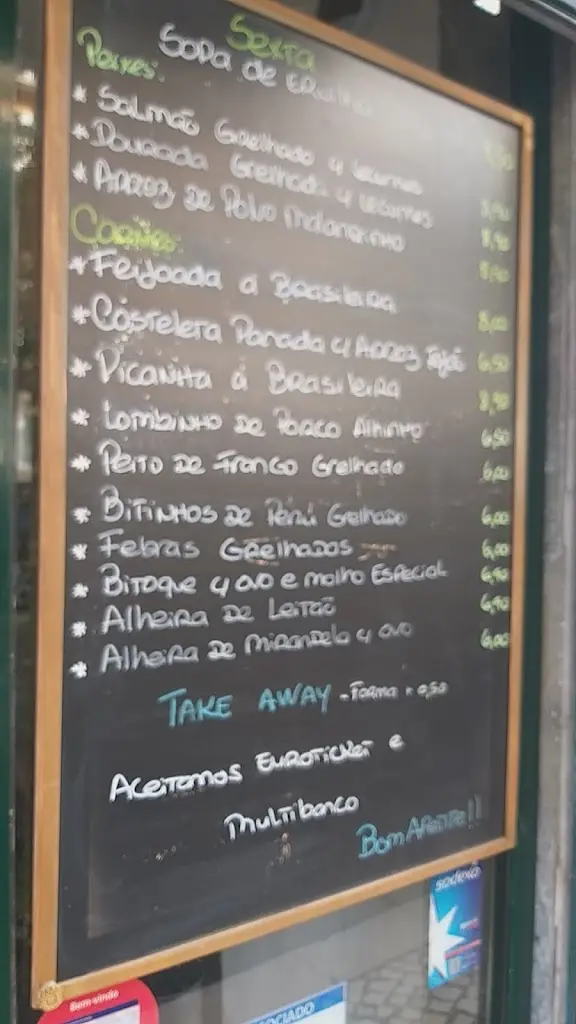 Sexta
Sopa de
Peixes:
* Salmão Grelhado c/ Legumes
* Dourada Grelhada c/ Legumes 8,90
* Arroz de Polvo Malandrinho
Carnes:
* Feijoada á Brasileira 8,00
* Costeleta Panada c/ Arroz 6,50
* Picanha á Brasileira 8,90
* Lombinho de Porco Alhinho 6,50
* Peito de Frango Grelhado 6,00
* Bifinhos de Perú Grelhado 6,00
* Febras Grelhados 6,00
* Bitoque c/ ovo e molho Especial 6,90
* Alheira de Leitão 6,90
* Alheira de Mirandela c/ ovo 6,00
TAKE AWAY - Forma + 0,50
Aceitamos Euroticket e
Multibanco
Bom Apetite!!
sodexo
Bem-vindo